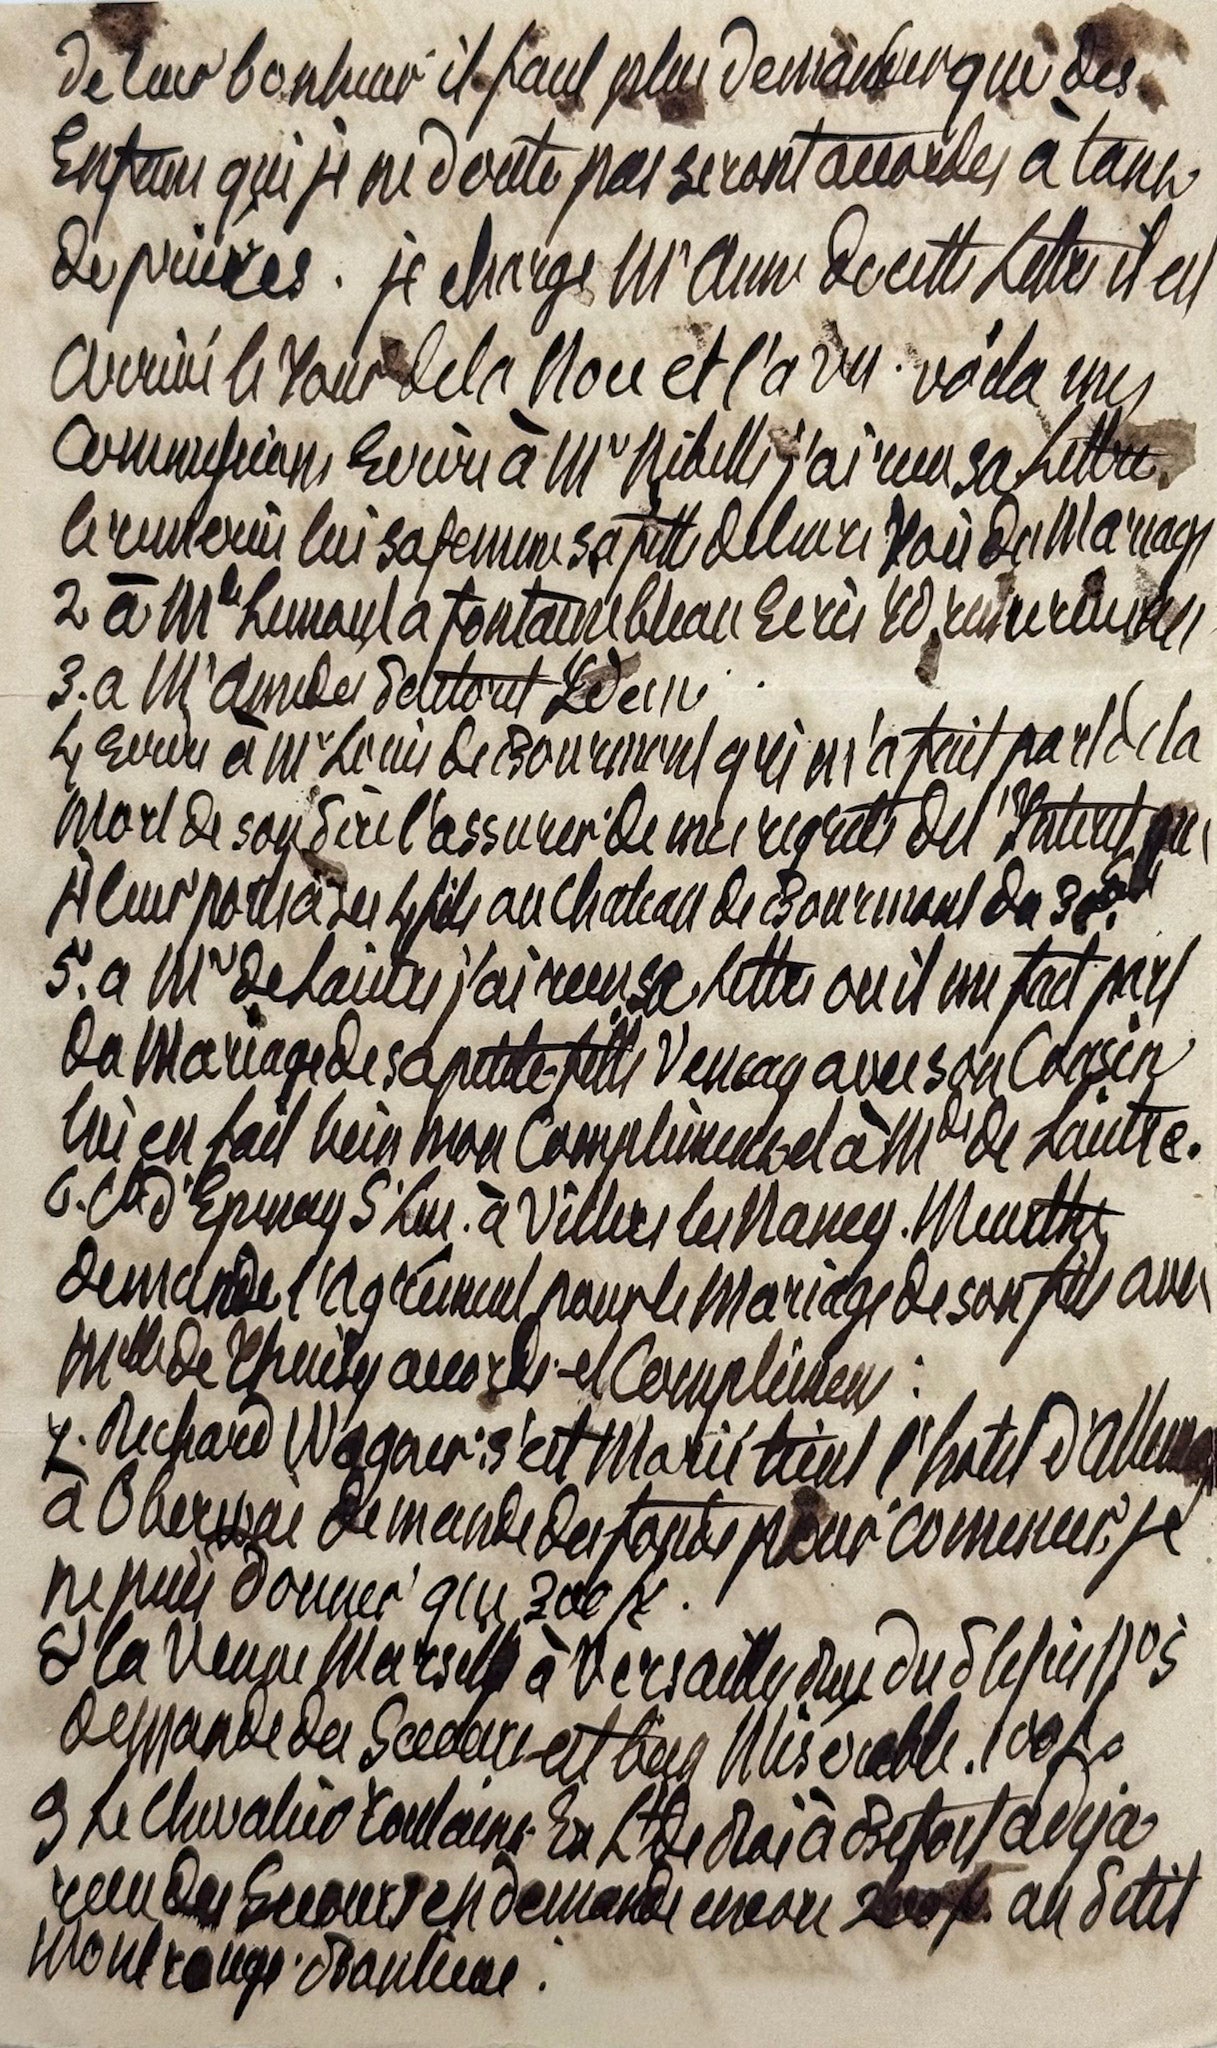 de leur bonheur il faut plus demander que des
Enfans qui je ne doute pas seront accordes à tans
de prieres. je charge Mr Aume de cette Lettre il est
arrivé le Jour de la Noce et l'a vu. voila mes
Commissions Ecrire à Mr Ribelle j'ai recu sa Lettre.
le remercier lui sa femme sa fille de leurs Vœu du Mariage
2 à Mle a fontainebleau Ecris
3. a Mr Amedee Idem
4 Ecrire à Mr Louis de Bourmont qui m'a fait part de la
Mort de son Pere l'assurer de mes regrets de l'Interet que
je leur porte à ses 4 fils au Chateau de Bourmont du 30
5. a Mr de Laitre j'ai recu sa Lettre ou il me fait part
du Mariage de sa petite-fille Vencay avec son Cousin
lui en fait bien mon Compliment et à Mde de Laitre.
6. Cte d'Epinay St Luc. à Villers les Nancy. Meurthe
demande l'agrément pour le Mariage de son fils avec
Melle de Thuisy accordé et Complimens :
7. Richard Wagner s'est Marié tient l'hotel d'Allemag
à demande des fonds pour comencer, je
ne puis donner que 300 f.
8 la Veuve à Versailles rue du Plessis No 5
demande des Secours est bien Misérable. 100 f
9 Le Chevalier Toulains Ex Lt de Roi à Befort a deja
recu des Secours en demande encore 200 f. au Petit
Montrouge. Banlieue.